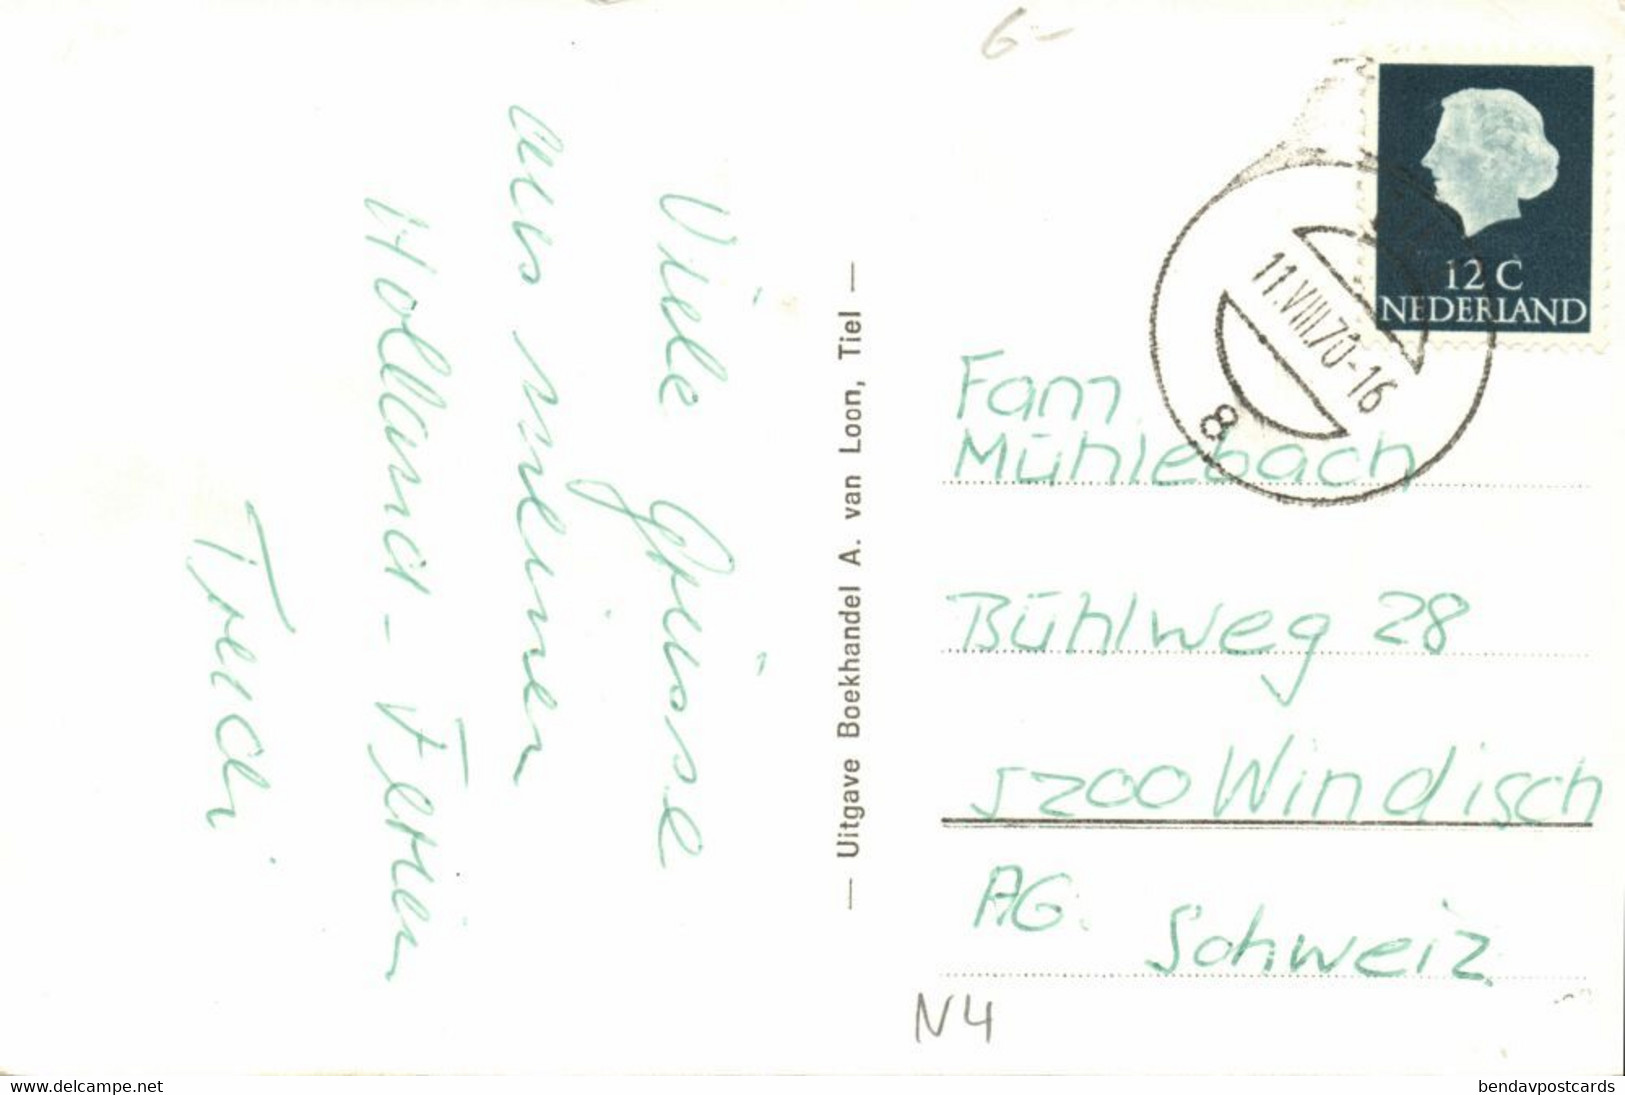 6-
Viele Grüsse
aus meiner
Holland-Ferien
Trudi
— Uitgave Boekhandel A. van Loon, Tiel —
12 C
NEDERLAND
11.VIII.70-16
8
Fam
Mühlebach
Bühlweg 28
5200 Windisch
AG.
Schweiz
N4
www.delcampe.net
bendavpostcards